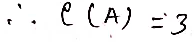 ∴ ρ(A) = 3